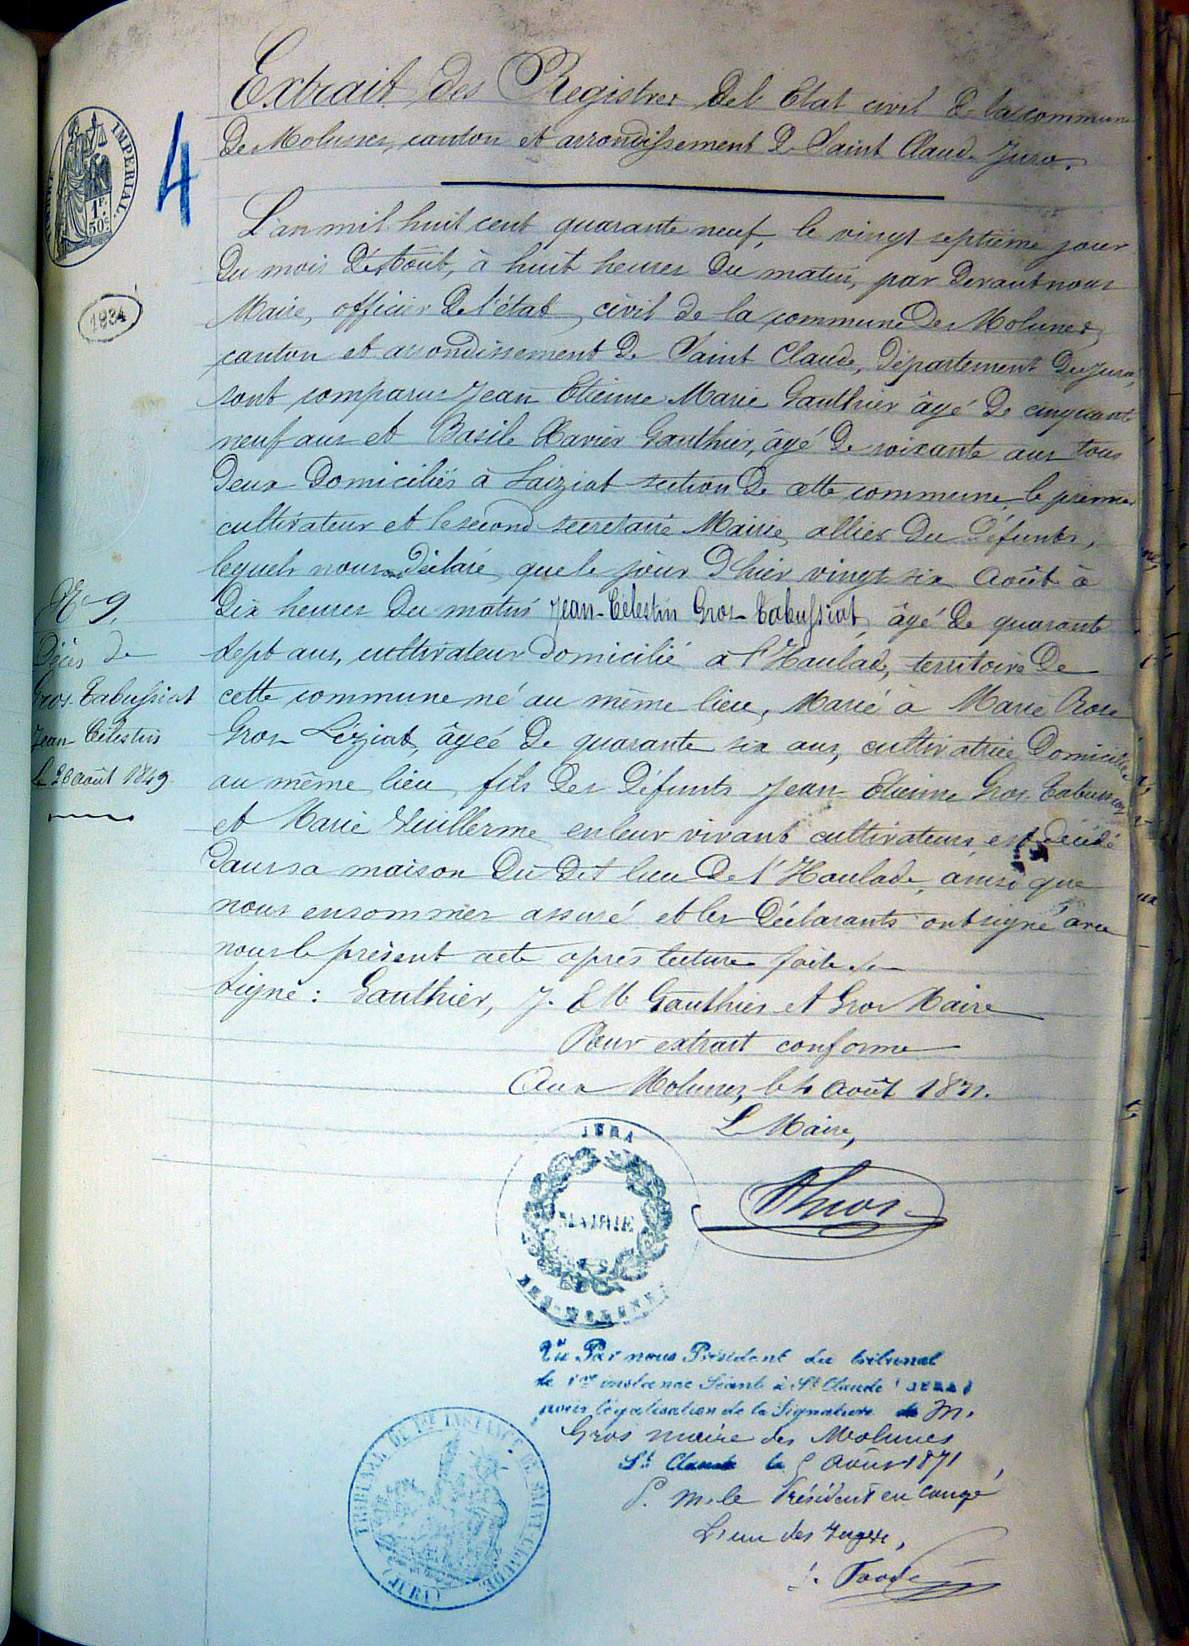 Extrait des Registres de l'Etat civil de la commune
des Molunes, canton et arrondissement de Saint Claude Jura.
4
IMPERIAL.
1F.
50c
1834
L'an mil huit cent quarante neuf, le vingt septième jour
du mois d'Août, à huit heures du matin, par devant nous
Maire, officier de l'état civil de la commune des Molunes,
canton et arrondissement de Saint Claude, département du Jura,
sont comparus Jean Etienne Marie Gauthier âgé de cinquante
neuf ans et Basile Xavier Gauthier, âgé de soixante ans tous
deux domiciliés à Laiziat section de cette commune, le premier
cultivateur et le second secretaire Mairie, alliés du défunts,
lequels nous ont déclaré que le jour d'hier vingt six Août à
dix heures du matin Jean-Célestin Gros-Tabussiat, âgé de quarante
sept ans, cultivateur domicilié à l'Haulade, territoire de
cette commune né au même lieu, Marié à Marie Rose
Gros Léziat, âgée de quarante six ans, cultivatrice domiciliée
au même lieu, fils des défunts Jean Etienne Gros Tabussiat
et Marie Vuillerme en leur vivant cultivateurs, est décédé
dans sa maison du dit lieu de l'Haulade, ainsi que
nous en sommes assuré et les déclarants ont signé avec
nous le présent acte après lecture faite
Signé : Gauthier, J. E M Gauthier et Gros Maire
No 9.
Décès de
Gros-Tabussiat
Jean Célestin
le 26 août 1849
Pour extrait conforme
Aux Molunes, le 4 Août 1871.
Le Maire,
Gros
JURA
MAIRIE
DES MOLUNES
Vu Par nous Président du tribunal
de 1ère instance Séant à St Claude (JURA)
pour légalisation de la Signature de M.
Gros maire des Molunes
St Claude le 5 Août 1871
P. M. le Président en congé,
L'un des Juges,
TRIBUNAL DE 1RE INSTANCE DE SAINT CLAUDE
(JURA)